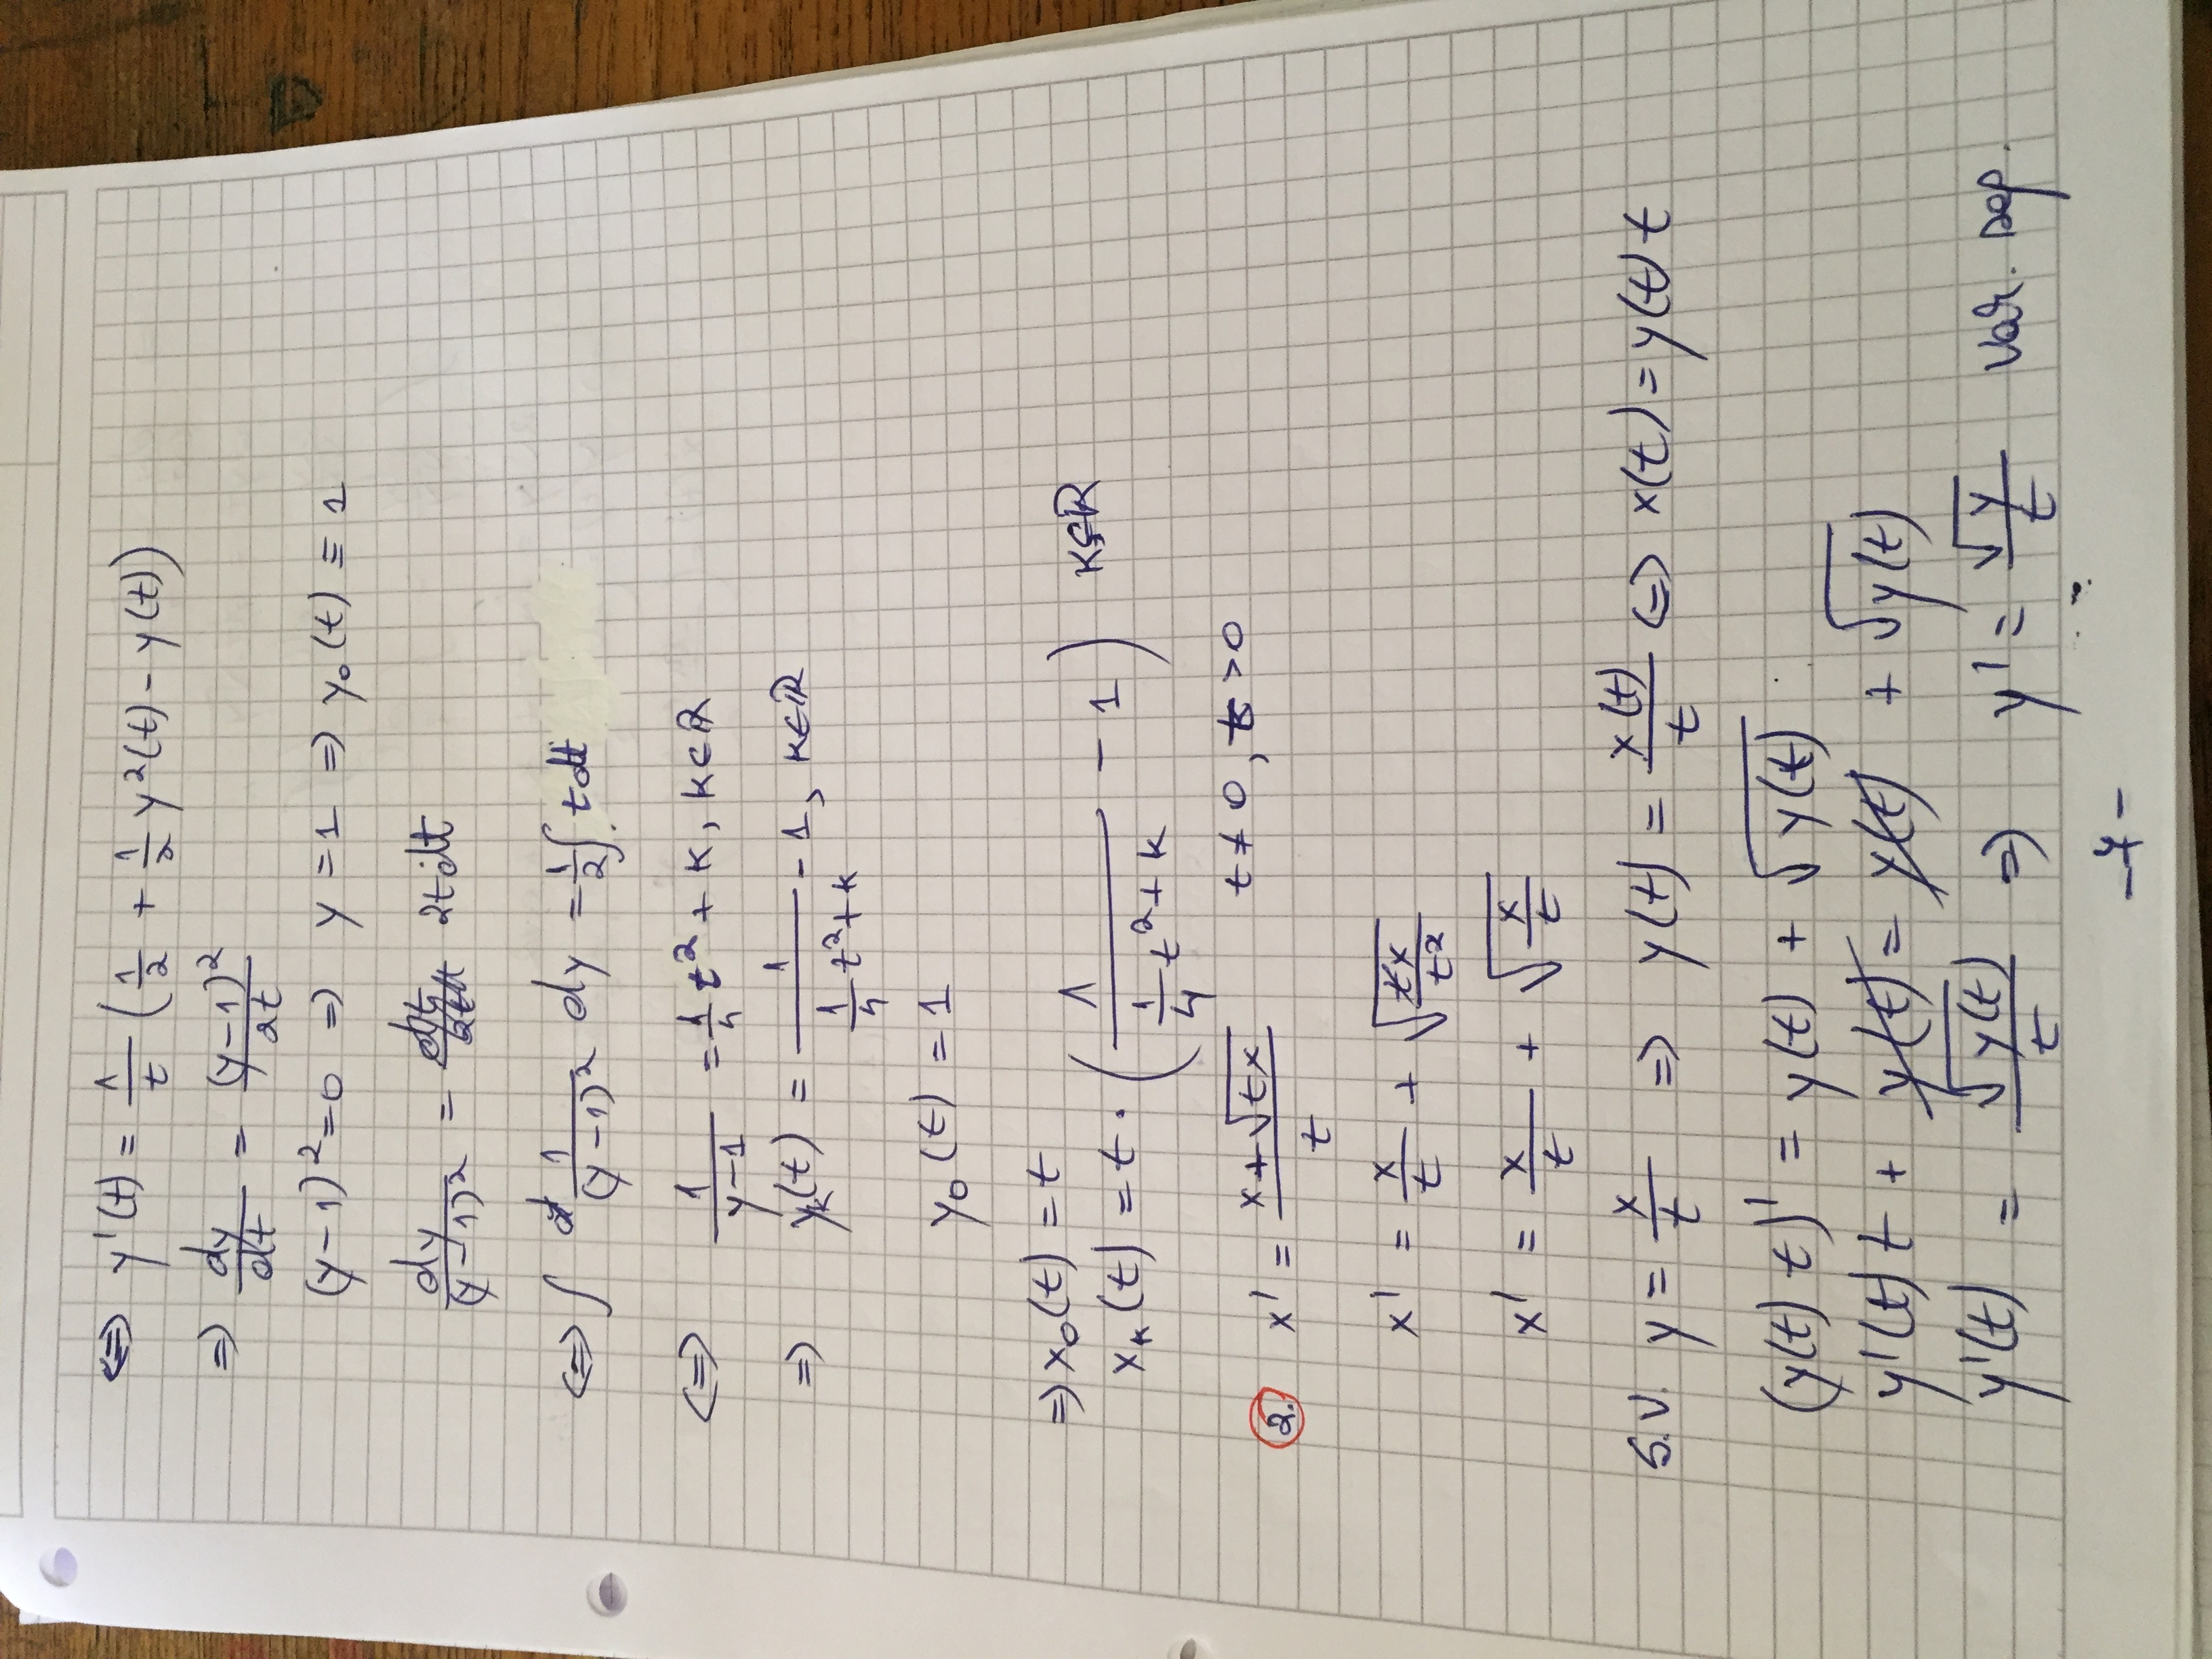 ⇔ y'(t) = 1/t (1/2 + 1/2 y²(t) - y(t))
⇒ dy/dt = (y-1)²/2t
(y-1)² = 0 ⇒ y = 1 ⇒ y₀(t) ≡ 1
dy/(y-1)² = 2t dt
⇔ ∫ 1/(y-1)² dy = 1/2 ∫ t dt
⇔ 1/(y-1) = 1/4 t² + k, k∈ℝ
⇒ yₖ(t) = 1/(1/4 t² + k) - 1, k∈ℝ
y₀(t) = 1
⇒ x₀(t) = t
xₖ(t) = t · (1/(1/4 t² + k) - 1) k∈ℝ
2. x' = (x + √(tx))/t t ≠ 0, >0
x' = x/t + √(tx/t²)
x' = x/t + √(x/t)
S.V. y = x/t ⇒ y(t) = x(t)/t ⇔ x(t) = y(t) t
(y(t) t)' = y(t) + √(y(t))
y'(t) t + y(t) = y(t) + √(y(t))
y'(t) = √(y(t))/t ⇒ y' = √y/t var. sep.
-7-